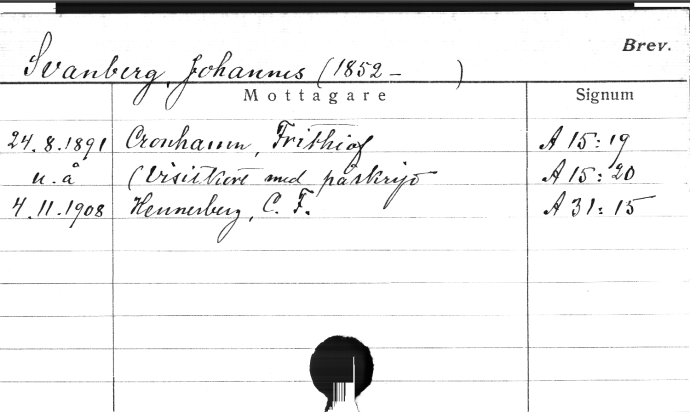 Brev.
Svanberg, Johannes (1852 - )
Mottagare Signum
24.8.1891 Cronhamn, Frithiof A 15:19
u.å (Visitkort med påskrift A 15:20
4.11.1908 Hennerberg, C. F. A 31:15